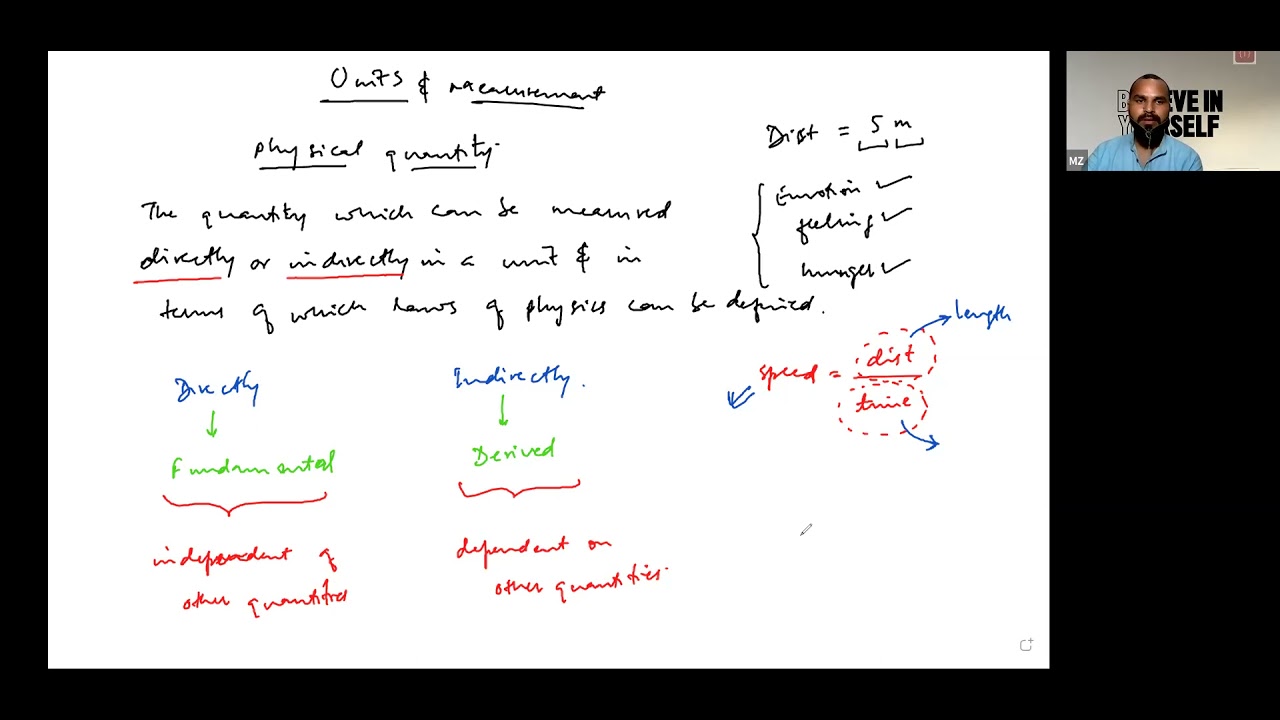 Units & measurement
Physical quantity.
The quantity which can be measured
directly or indirectly in a unit & in
terms of which laws of physics can be defined.
Dist = 5 m
Emotion ✓
feeling ✓
hunger ✓
Directly
↓
Fundamental
independent of
other quantities
Indirectly.
↓
Derived
dependent on
other quantities.
speed = dist
time
length
BELIEVE IN
YOURSELF
MZ